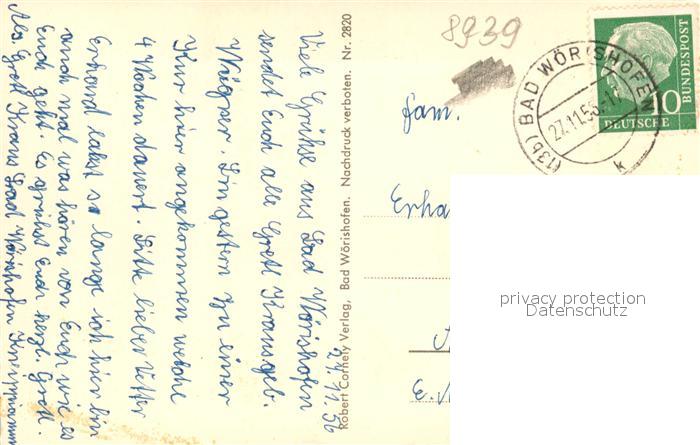 Viele Grüße aus Bad Wörishofen
24.11.56
sendet Euch alle Grett Kraus geb.
Wägner. Bin gestern zu einer
Kur hier angekommen welche
4 Wochen dauert. Bitte lieber Vetter
Erhard laßt so lange ich hier bin
auch mal was hören von Euch wie es
Euch geht. Es grüßt Euch herzl. Grett.
Abs. Grett Kraus Bad Wörishofen
Robert Cornely Verlag, Bad Wörishofen. Nachdruck verboten. Nr. 2820
8939
(13b) BAD WÖRISHOFEN
27.11.56
k
10
DEUTSCHE BUNDESPOST
Fam.
Erha
privacy protection
Datenschutz